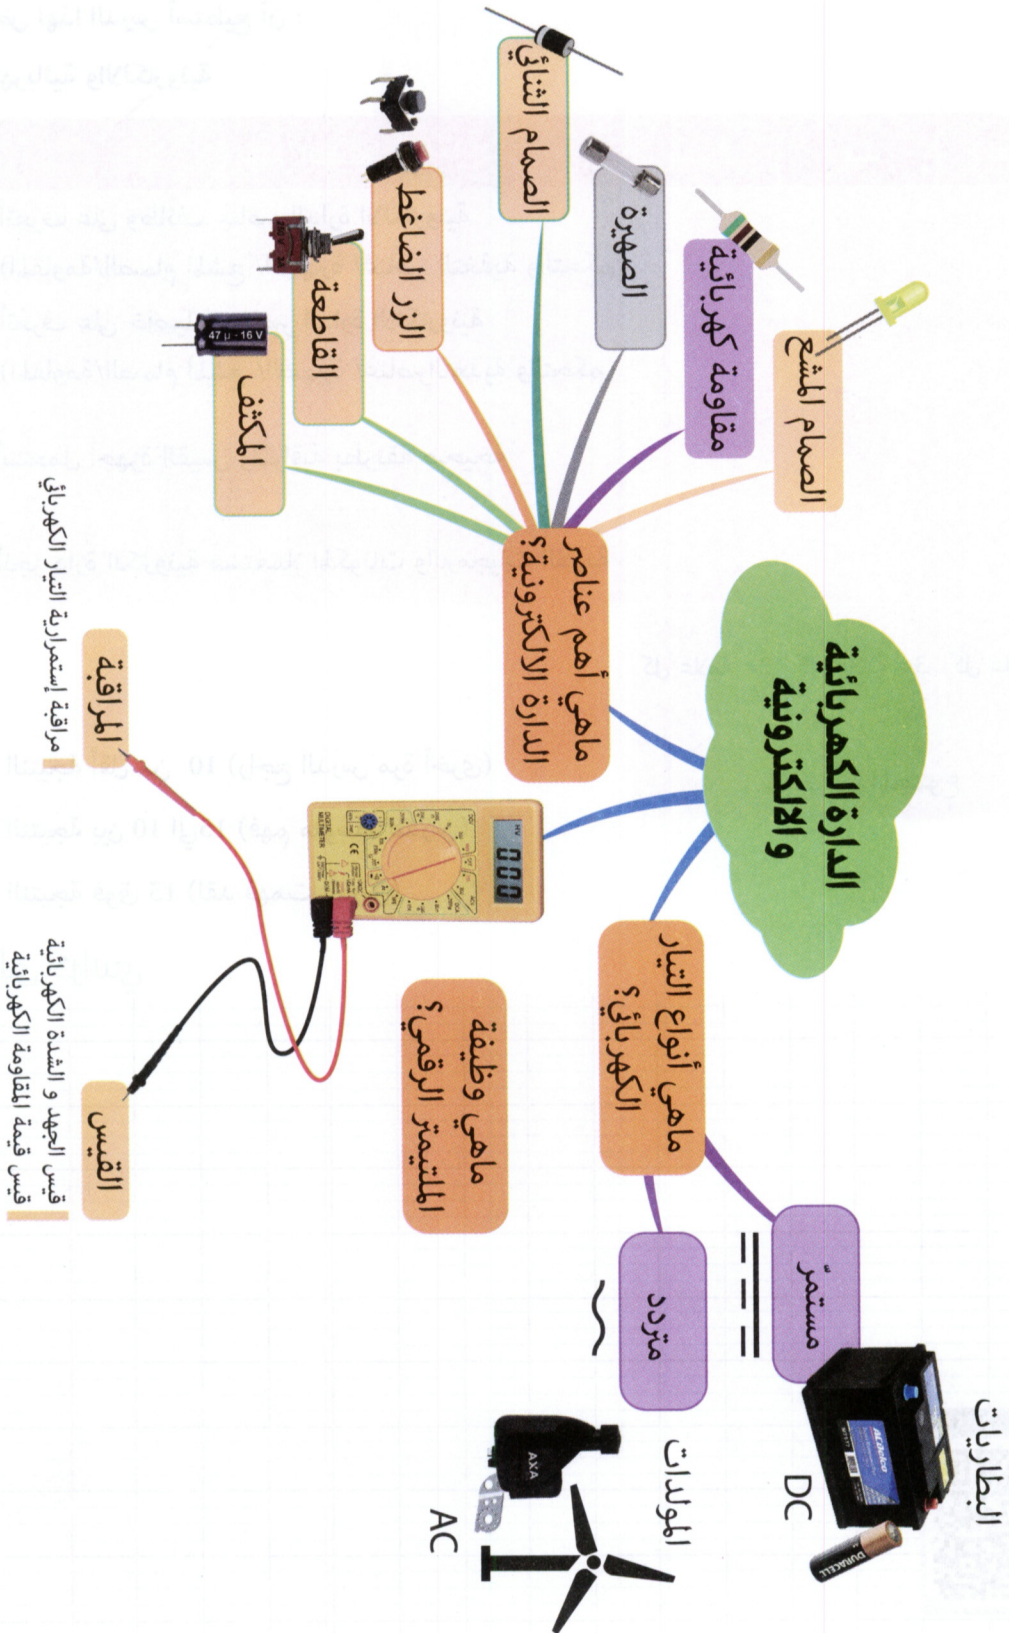 الدارة الكهربائية
والالكترونية
ماهي أهم عناصر
الدارة الالكترونية؟
الصمام المشع
مقاومة كهربائية
الصهيرة
الصمام الثنائي
الزر الضاغط
القاطعة
المكثف
47 µ - 16 V
ماهي أنواع التيار
الكهربائي؟
مستمرّ
البطاريات
DC
ACDelco
DURACELL
متردد
المولدات
AXA
AC
ماهي وظيفة
الملتيمتر الرقمي؟
000
DIGITAL
MULTIMETER
المراقبة
مراقبة إستمرارية التيار الكهربائي
القيس
قيس الجهد و الشدة الكهربائية
قيس قيمة المقاومة الكهربائية